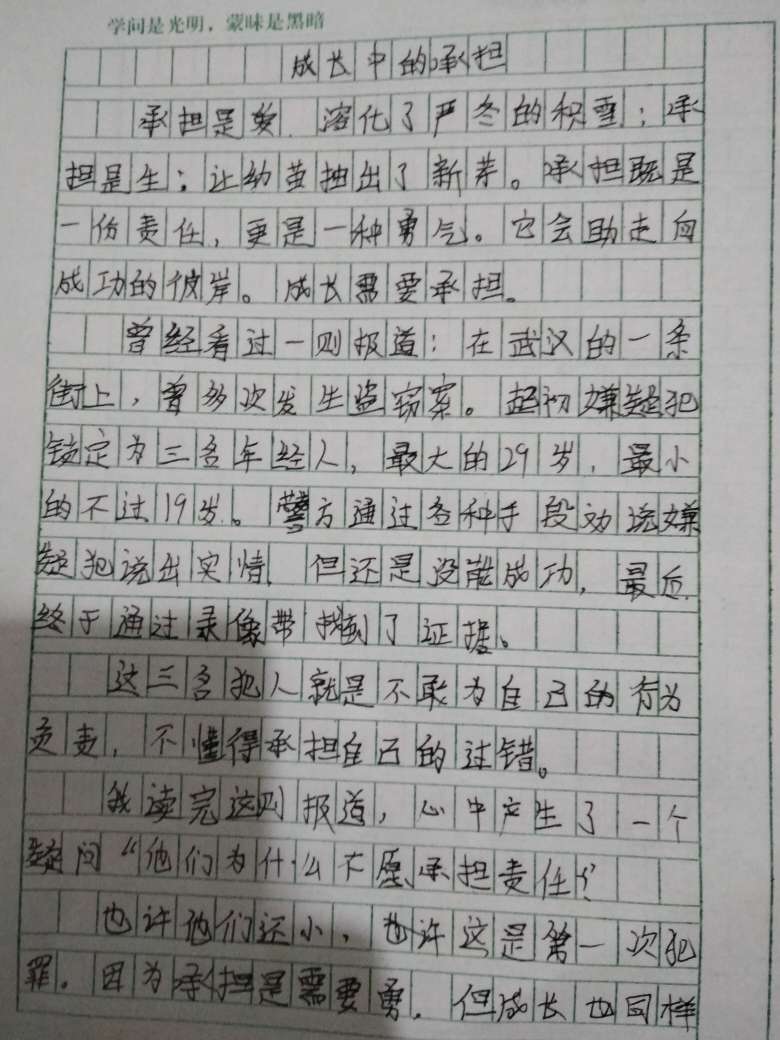 学问是光明，蒙昧是黑暗
成长中的承担
承担是炎，溶化了严冬的积雪；承
担是生；让幼苗抽出了新芽。承担既是
一份责任，更是一种勇气。它会助走向
成功的彼岸。成长需要承担。
曾经看过一则报道：在武汉的一条
街上，曾多次发生盗窃案。起初嫌疑犯
锁定为三名年经人，最大的29岁，最小
的不过19岁。警方通过各种手段劝说嫌
疑犯说出实情，但还是没能成功，最后
终于通过录像带找到了证据。
这三名犯人就是不敢为自己的行为
负责，不懂得承担自己的过错。
我读完这则报道，心中产生了一个
疑问“他们为什么不愿承担责任？”
也许他们还小，也许这是第一次犯
罪。因为承担是需要勇，但成长也同样